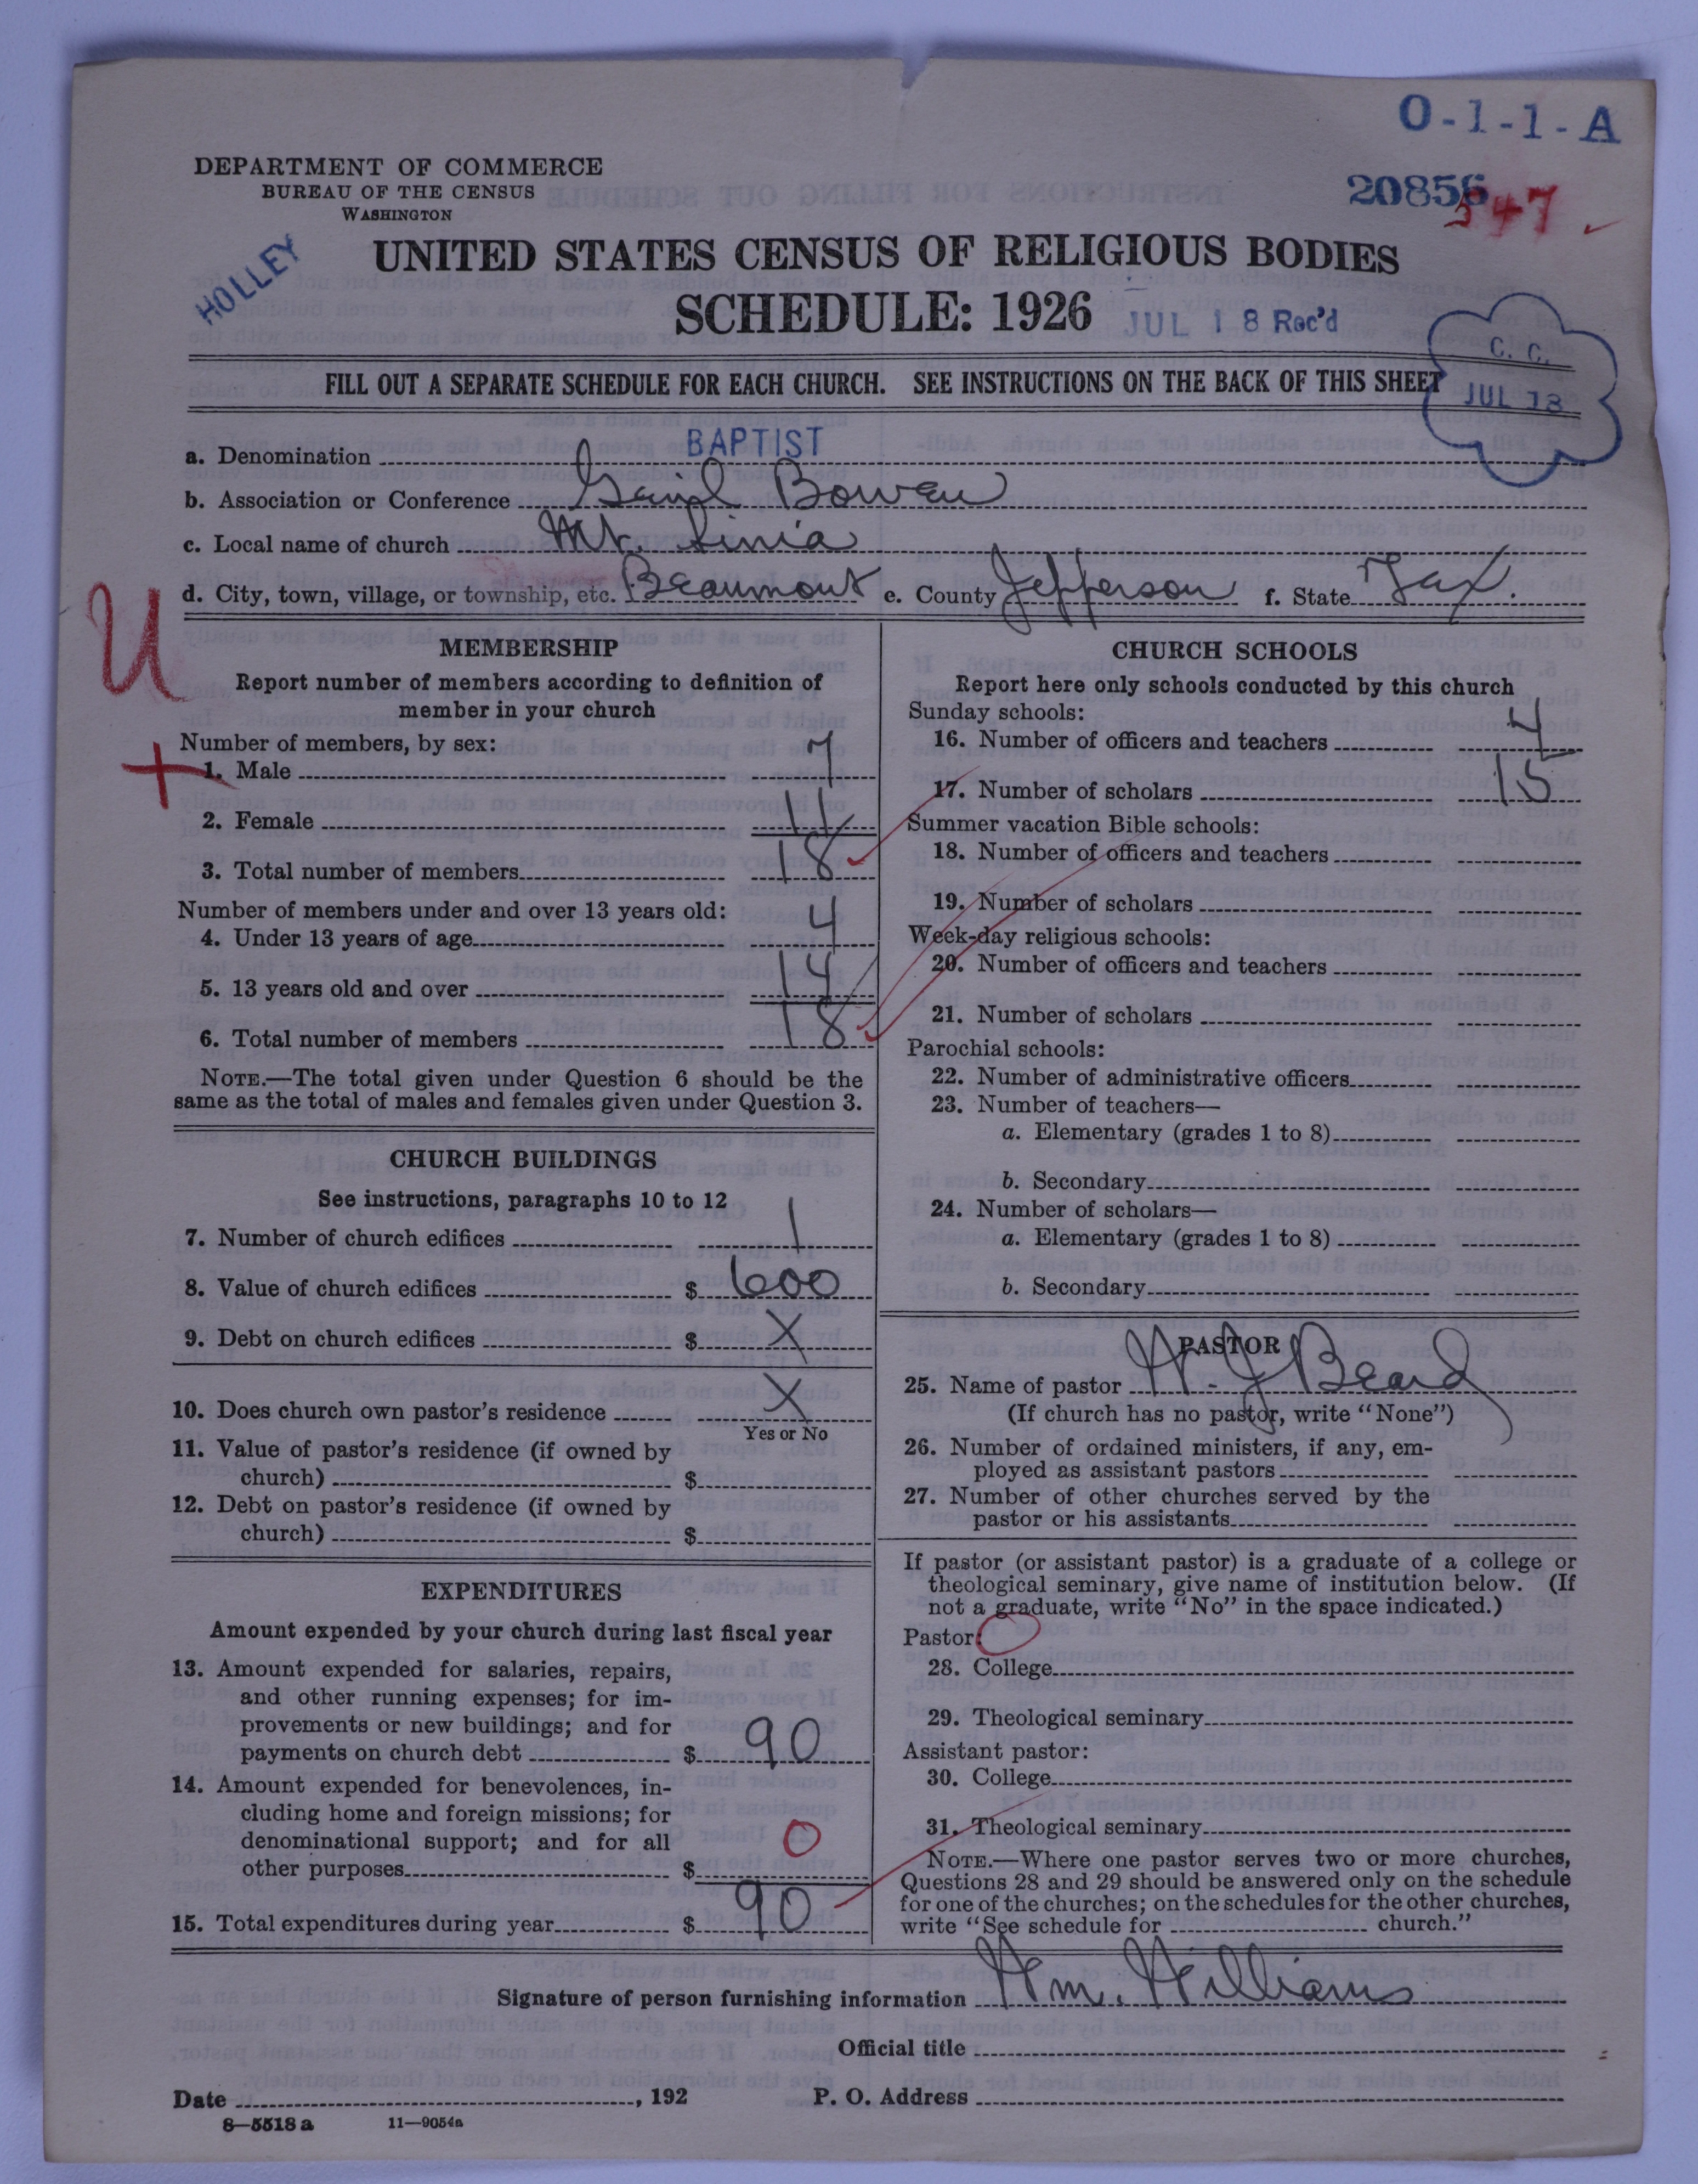 O-1-1-A
DEPARTMENT OF COMMERCE
BUREAU OF THE CENSUS
WASHINGTON
20856
547
HOLLEY
UNITED STATES CENSUS OF RELIGIOUS BODIES
SCHEDULE: 1926
JUL 18 Rec'd
C. C.
JUL 18
FILL OUT A SEPARATE SCHEDULE FOR EACH CHURCH. SEE INSTRUCTIONS ON THE BACK OF THIS SHEET
a. Denomination BAPTIST
b. Association or Conference Bowen
c. Local name of church Mt. Sinia
d. City, town, village, or township, etc. Beaumont e. County Jefferson f. State Tex.
U
MEMBERSHIP
Report number of members according to definition of
member in your church
Number of members, by sex:
1. Male 7
2. Female 11
3. Total number of members 18
Number of members under and over 13 years old:
4. Under 13 years of age 4
5. 13 years old and over 14
6. Total number of members 18
NOTE.—The total given under Question 6 should be the
same as the total of males and females given under Question 3.
CHURCH BUILDINGS
See instructions, paragraphs 10 to 12
7. Number of church edifices 1
8. Value of church edifices $ 600
9. Debt on church edifices $ X
10. Does church own pastor's residence X
Yes or No
11. Value of pastor's residence (if owned by
church) $
12. Debt on pastor's residence (if owned by
church) $
EXPENDITURES
Amount expended by your church during last fiscal year
13. Amount expended for salaries, repairs,
and other running expenses; for im-
provements or new buildings; and for
payments on church debt $ 90
14. Amount expended for benevolences, in-
cluding home and foreign missions; for
denominational support; and for all
other purposes $ 0
15. Total expenditures during year $ 90
CHURCH SCHOOLS
Report here only schools conducted by this church
Sunday schools:
16. Number of officers and teachers 4
17. Number of scholars 15
Summer vacation Bible schools:
18. Number of officers and teachers
19. Number of scholars
Week-day religious schools:
20. Number of officers and teachers
21. Number of scholars
Parochial schools:
22. Number of administrative officers
23. Number of teachers—
a. Elementary (grades 1 to 8)
b. Secondary
24. Number of scholars—
a. Elementary (grades 1 to 8)
b. Secondary
PASTOR
25. Name of pastor W. J. Beard
(If church has no pastor, write "None")
26. Number of ordained ministers, if any, em-
ployed as assistant pastors
27. Number of other churches served by the
pastor or his assistants
If pastor (or assistant pastor) is a graduate of a college or
theological seminary, give name of institution below. (If
not a graduate, write "No" in the space indicated.)
Pastor: O
28. College
29. Theological seminary
Assistant pastor:
30. College
31. Theological seminary
NOTE.—Where one pastor serves two or more churches,
Questions 28 and 29 should be answered only on the schedule
for one of the churches; on the schedules for the other churches,
write "See schedule for church."
Signature of person furnishing information Wm. Williams
Official title
Date , 192 P. O. Address
8—5518 a 11—9054a